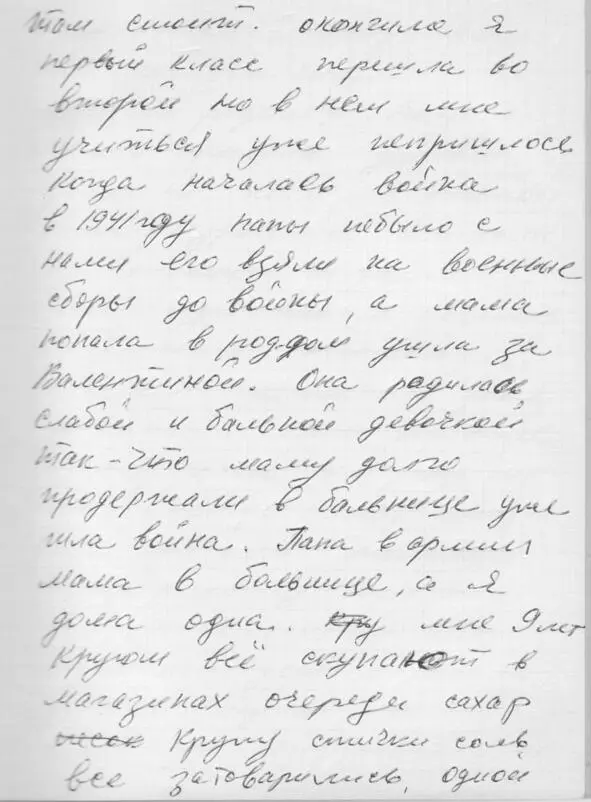 там стоит. окончила я
первый класс перешла во
второй но в нем мне
учиться уже непришлось
когда началась война
в 1941 году папы небыло с
нами его взяли на военные
сборы до войны, а мама
попала в род-дом ушла за
Валентиной. Она родилась
слабой и бальной девочкой
так-что маму долго
продержали в бальнице уже
шла война. Папа в армии
мама в больнице, а я
дома одна. кру мне 9 лет
кругом всё скупают в
магазинах очереди сахар
песок крупу спички соль
все затоварились, одной